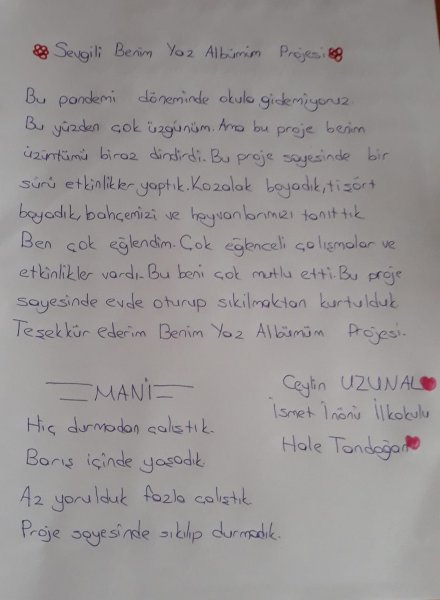 Sevgili Benim Yaz Albümüm Projesi
Bu pandemi döneminde okula gidemiyoruz.
Bu yüzden çok üzgünüm. Ama bu proje benim
üzüntümü biraz dindirdi. Bu proje sayesinde bir
sürü etkinlikler yaptık. Kozalak boyadık, tişört
boyadık, bahçemizi ve hayvanlarımızı tanıttık
Ben çok eğlendim. Çok eğlenceli çalışmalar ve
etkinlikler vardı. Bu beni çok mutlu etti. Bu proje
sayesinde evde oturup sıkılmaktan kurtulduk
Teşekkür ederim Benim Yaz Albümüm Projesi.
MANİ
Hiç durmadan çalıştık.
Barış içinde yaşadık.
Az yorulduk fazla çalıştık
Proje sayesinde sıkılıp durmadık.
Ceylin UZUNAL
İsmet İnönü İlkokulu
Hale Tandoğan